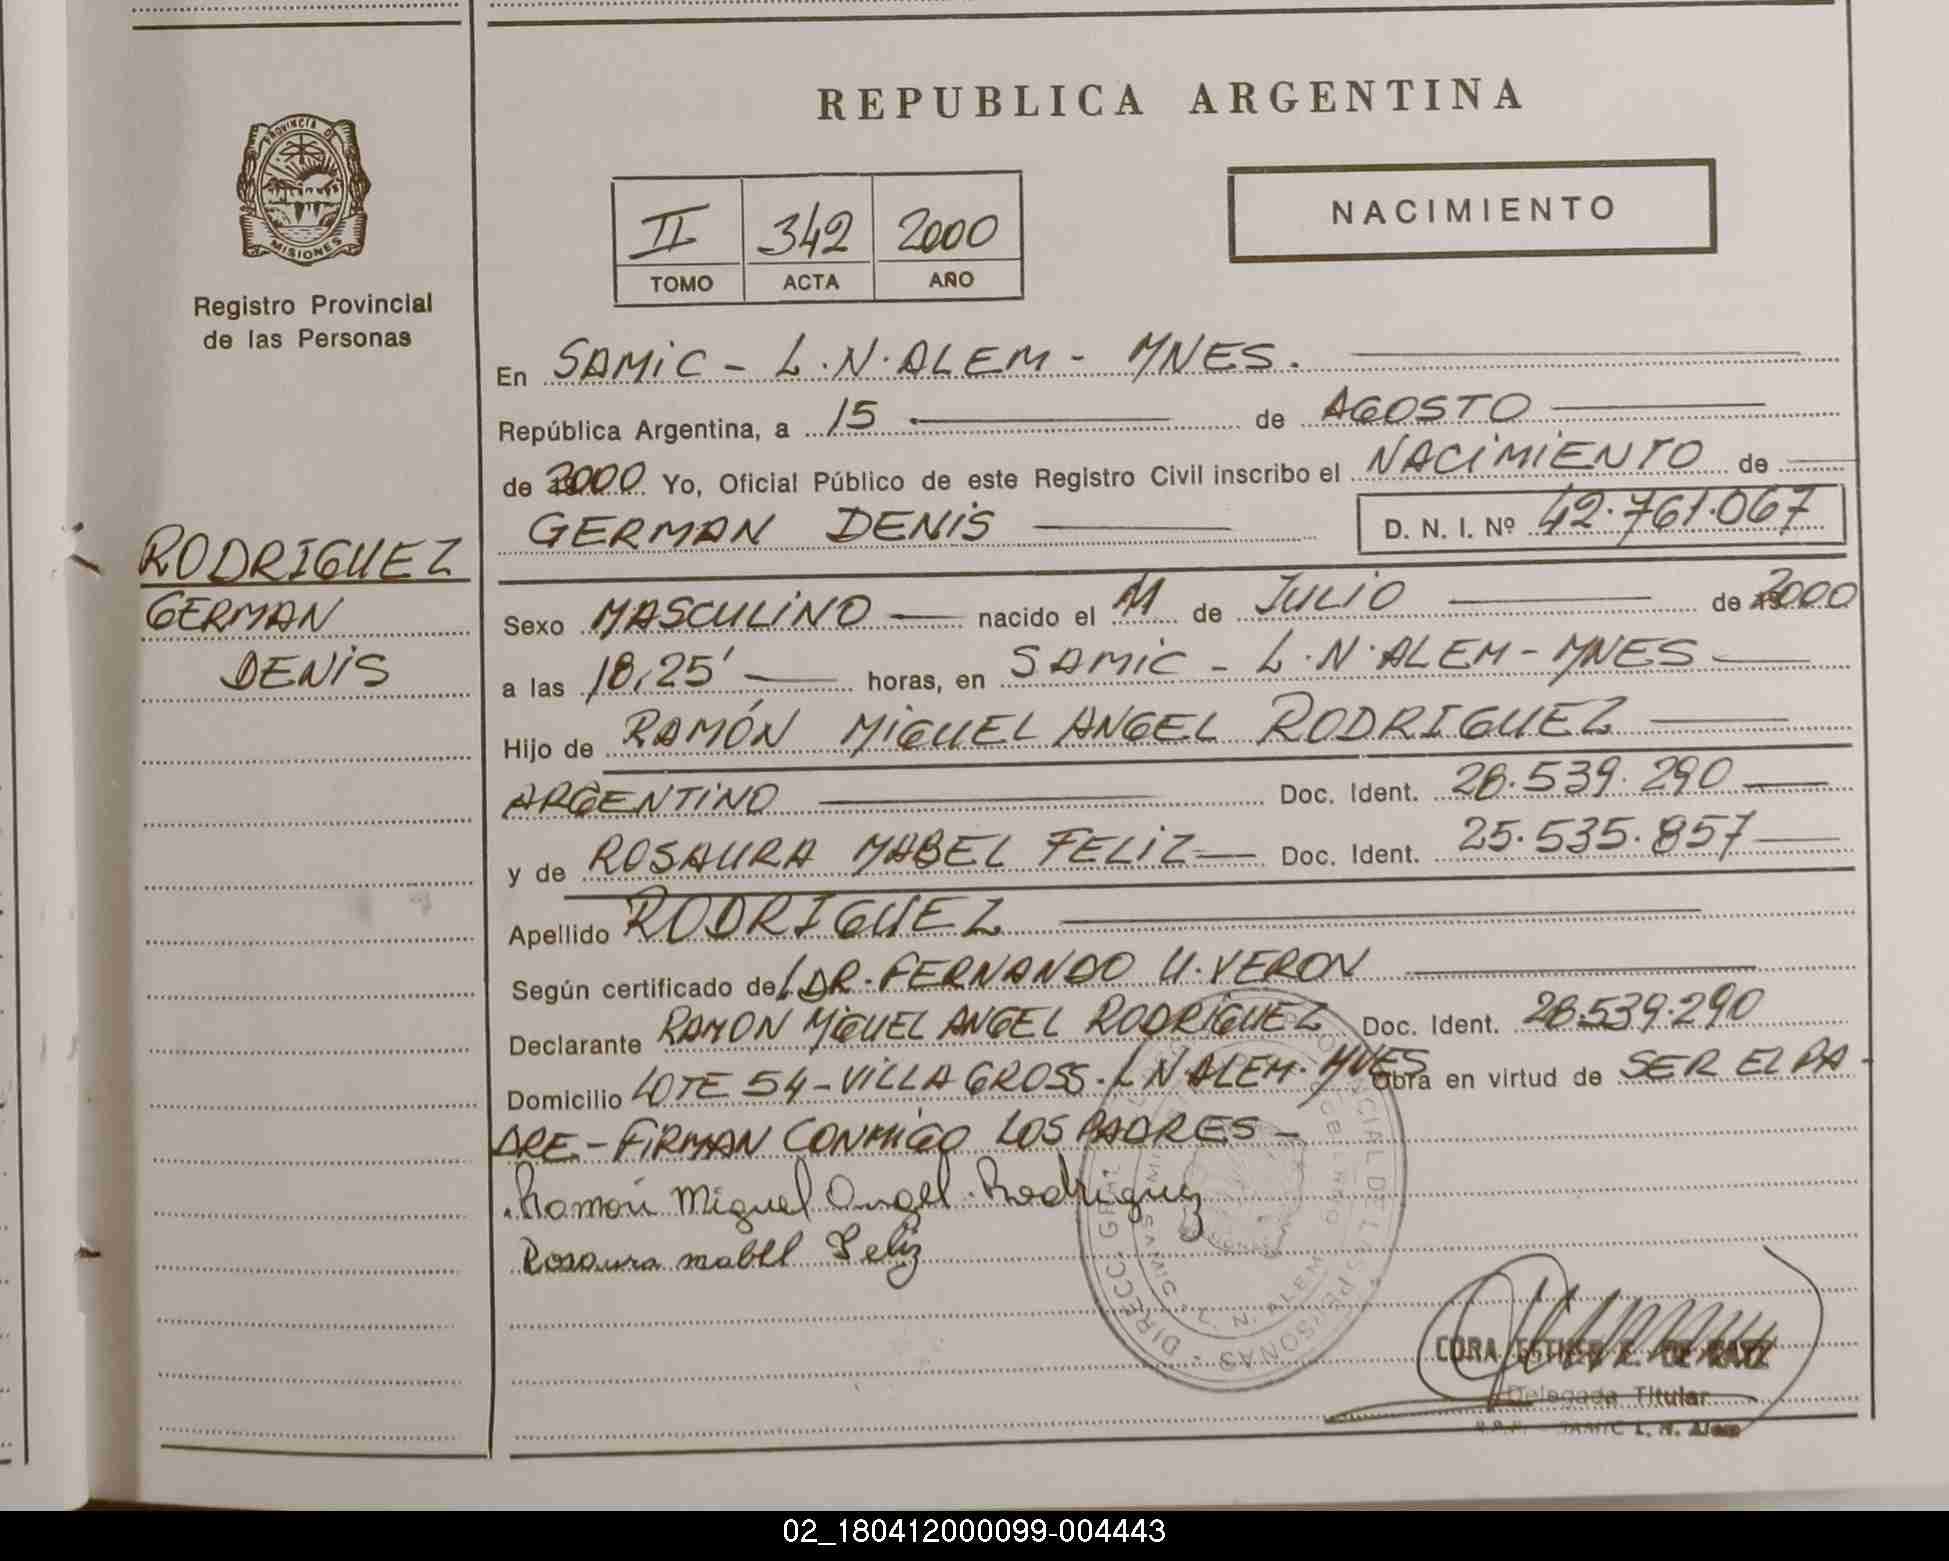 REPUBLICA ARGENTINA
PROVINCIA DE
MISIONES
Registro Provincial
de las Personas
II 342 2000
TOMO ACTA AÑO
NACIMIENTO
RODRIGUEZ
GERMAN
DENIS
En SAMIC - L.N.ALEM - MNES.
República Argentina, a 15 de AGOSTO
de 2000 Yo, Oficial Público de este Registro Civil inscribo el NACIMIENTO de
GERMAN DENIS D. N. I. Nº 42.761.067
Sexo MASCULINO nacido el 11 de JULIO de 2000
a las 18,25' horas, en SAMIC - L.N.ALEM - MNES
Hijo de RAMÓN MIGUEL ANGEL RODRIGUEZ
ARGENTINO Doc. Ident. 28.539.290
y de ROSAURA MABEL FELIZ Doc. Ident. 25.535.857
Apellido RODRIGUEZ
Según certificado del DR. FERNANDO U. VERON
Declarante RAMON MIGUEL ANGEL RODRIGUEZ Doc. Ident. 28.539.290
Domicilio LOTE 54 - VILLA GROSS. L N. ALEM. MNES Obra en virtud de SER EL PA-
DRE - FIRMAN CONMIGO LOS PADRES -
Ramón Miguel Angel Rodriguez
Rosaura mabel Feliz
DIRECC. GRAL. PROVINCIAL DE LAS PERSONAS
L. N. ALEM
CORA ESTHER E. DE
Delegada Titular
SAMIC L. N. Alem
02_180412000099-004443